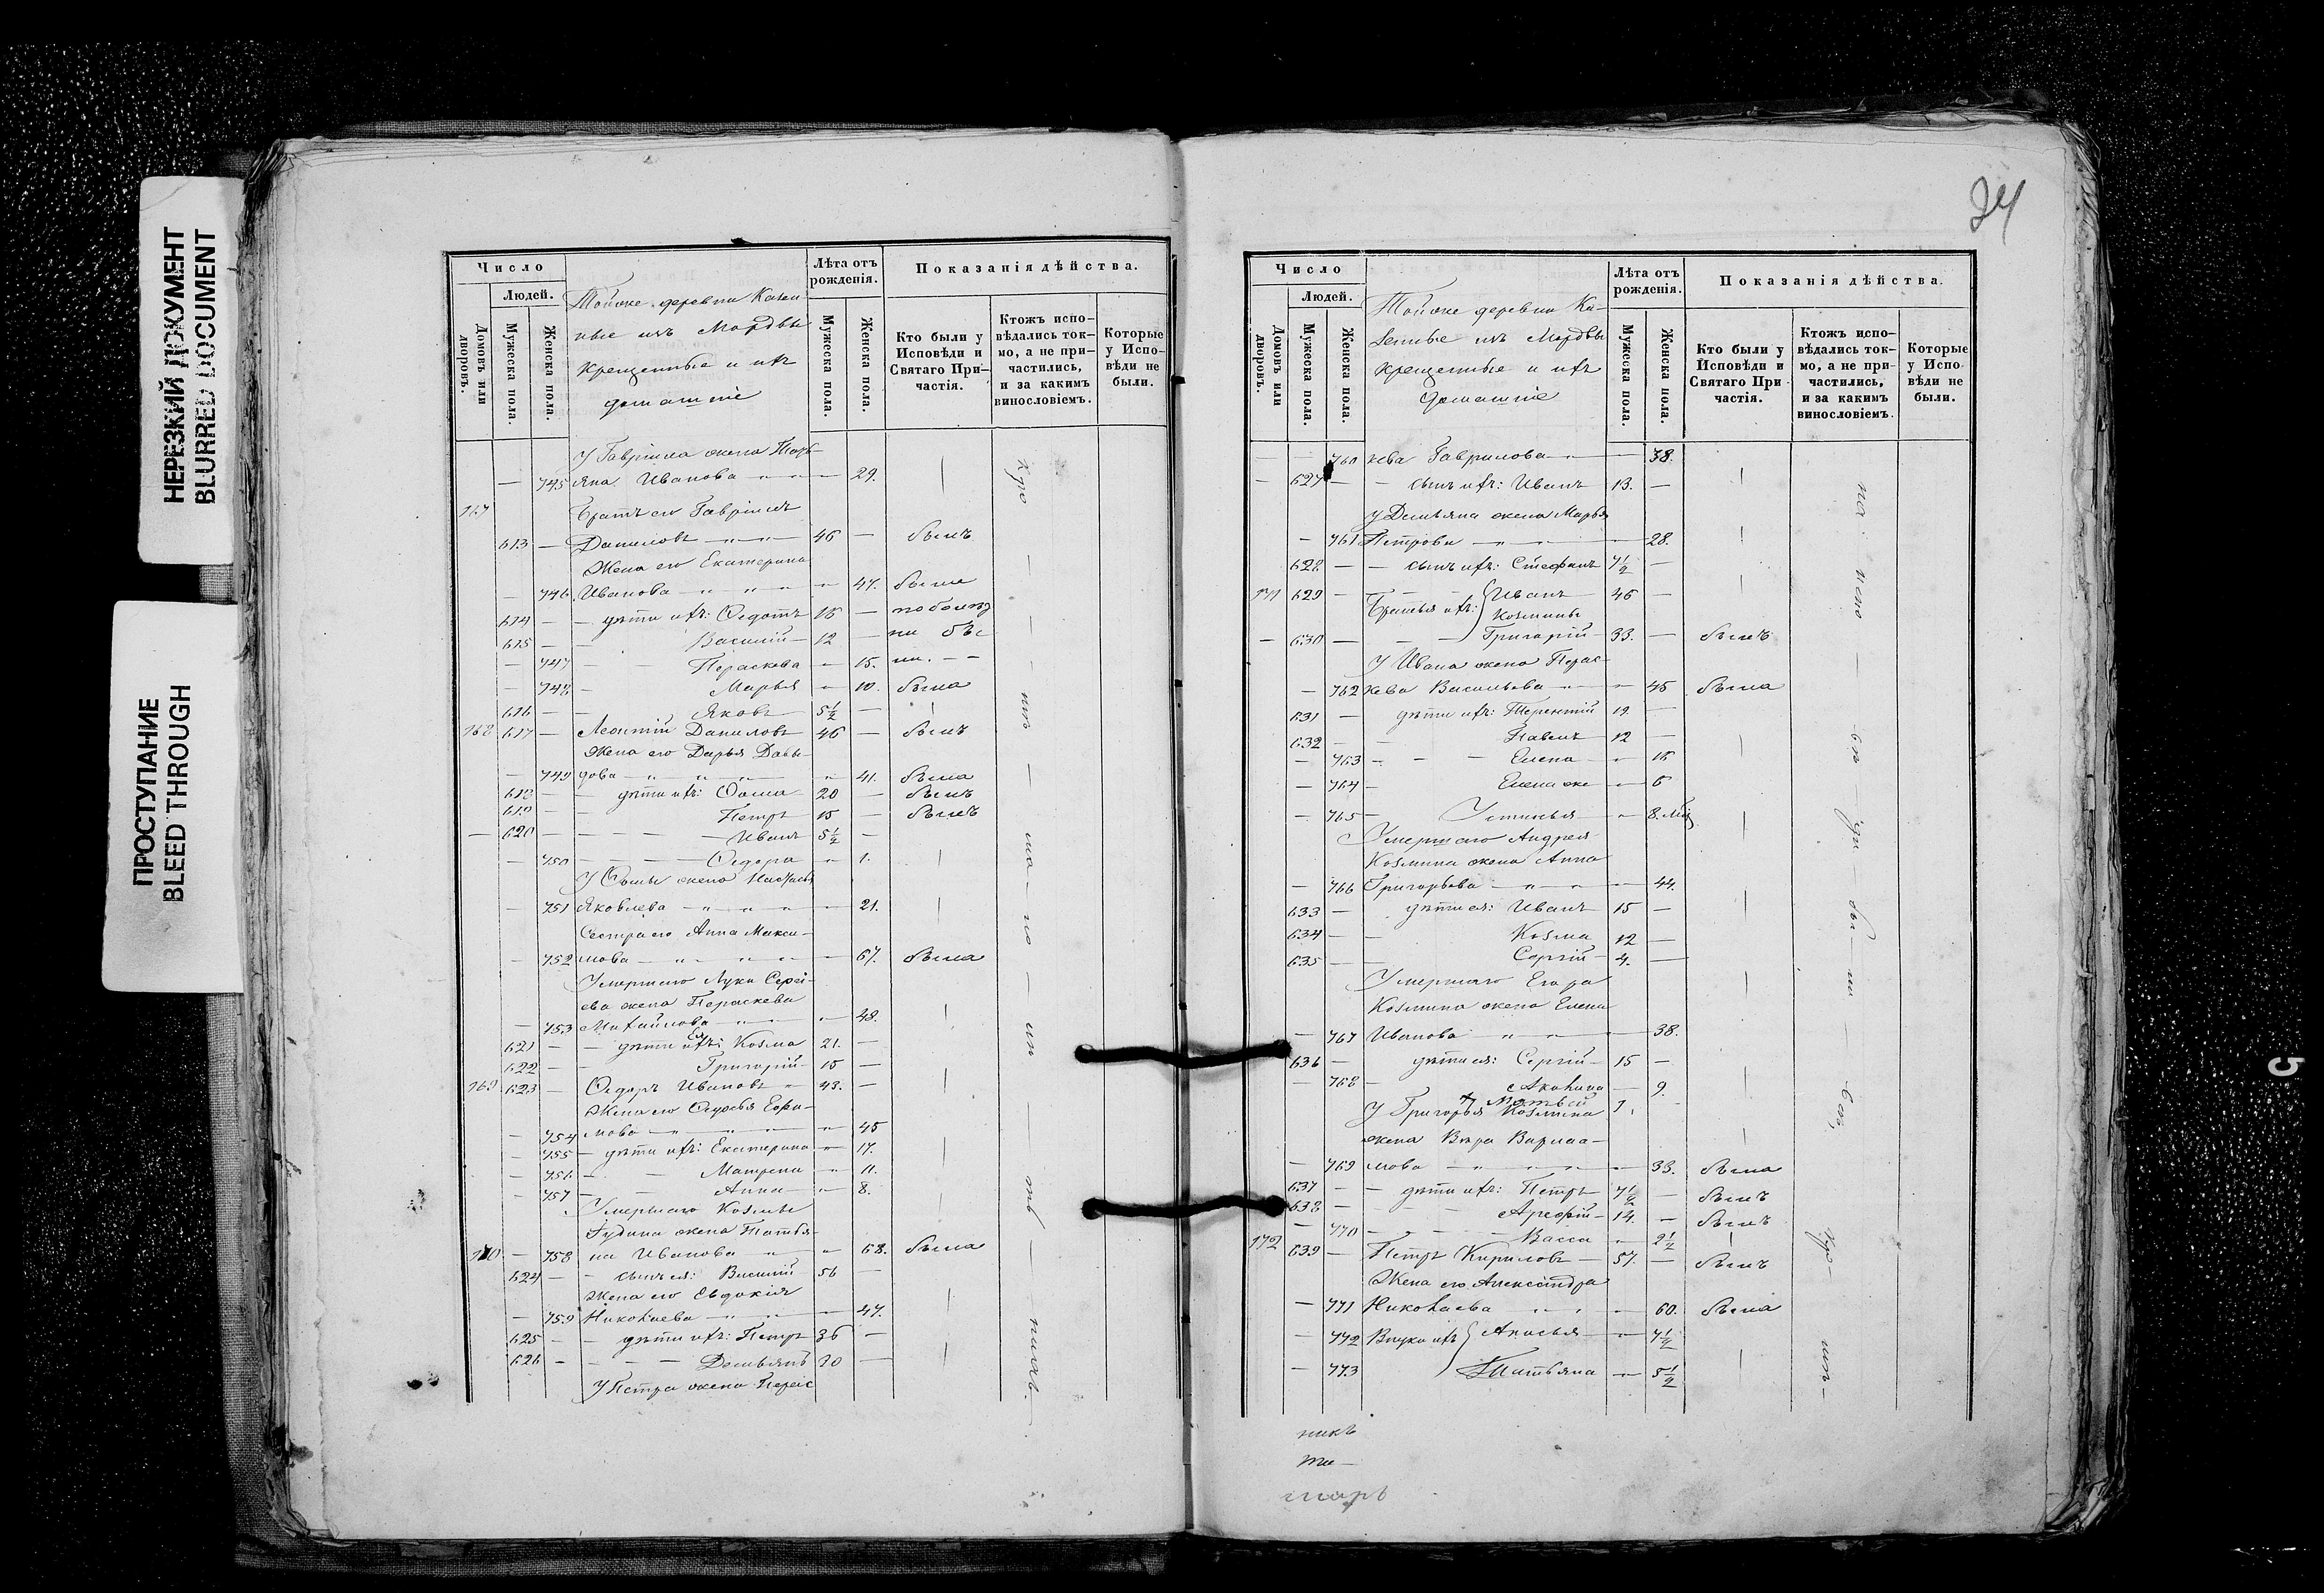 НЕРЕЗКИЙ ДОКУМЕНТ
BLURRED DOCUMENT
ПРОСТУПАНИЕ
BLEED THROUGH
Число
Людей.
Домовъ или дворовъ.
Мужеска пола.
Женска пола.
Тойже деревни Казен-
ные изъ Мордвы
крещенные и ихъ
домашніе
Лѣта отъ рожденія.
Мужеска пола.
Женска пола.
Показанія дѣйства.
Кто были у Исповѣди и Святаго При-частія.
Ктожъ испо-вѣдались ток-мо, а не при-частились, и за какимъ винословіемъ.
Которые у Испо-вѣди не были.
У Гавріила жена Тать-
— 745 яна Иванова — 29.
167 Братъ его Гавріилъ
613 — Даниловъ 46 — былъ
Жена его Екатерина
— 746 Ивanова — 47.
614 — дѣти ихъ: Ѳедотъ 18 —
615 — Василій 12 —
— 747 Параскева — 15.
— 748 Марья — 10. была
616 — Яковъ 5½ —
168 617 — Леонтій Даниловъ 46 — былъ
Жена его Дарья Давы-
— 749 дова — 41. была
618 — дѣти ихъ: Ѳома 20 — былъ
619 — Петръ 15 — былъ
620 — Иванъ 5½ —
— 750 Ѳедора — 1.
У Ѳомы жена Настасья
— 751 Яковлева — 21.
Сестра его Анна Макси-
— 752 мова — 67. была
Умершаго Луки Сергі-
ева жена Параскева
— 753 Михайлова — 48.
621 — дѣти ея: Козма 21. —
622 — Григорій 15 —
169 623 — Ѳедоръ Ивановъ 43. —
Жена его Ѳедосья Ефи-
— 754 мова — 45
— 755 дѣти ихъ: Екатерина — 17.
— 756 Матрена — 11.
— 757 Анна — 8.
Умершаго Козмы
жена Татья-
170 — 758 на Иванова — 68. была
624 — сынъ ея: Василій 56 —
Жена его Евдокія
— 759 Николаева — 47.
625 — дѣти ихъ: Петръ 36 —
626 — Демьянъ 30 —
У Петра жена Парас
24
Число
Людей.
Домовъ или дворовъ.
Мужеска пола.
Женска пола.
Тойже деревни Ка-
зенные изъ Мордвы
крещенные и ихъ
домашніе
Лѣта отъ рожденія.
Мужеска пола.
Женска пола.
Показанія дѣйства.
Кто были у Исповѣди и Святаго При-частія.
Ктожъ испо-вѣдались ток-мо, а не при-частились, и за какимъ винословіемъ.
Которые у Испо-вѣди не были.
— 760 кева Гаврилова — 38.
627 — сынъ ихъ: Иванъ 13. —
У Демьяна жена Марья
— 761 Петрова — 28.
628 — сынъ ихъ: Стефанъ 7½ —
171 629 — Иванъ 46 —
Братья ихъ: Козмины
630 — Григорій 33. — былъ
У Ивана жена Парас-
— 762 кева Васильева — 45 была
631 — дѣти ихъ: Терентій 19 —
632 — Павелъ 12 —
— 763 Елена — 16
— 764 Елена же — 6
— 765 Устинья — 8.
Умершаго Андрея
Козмина жена Анна
— 766 Григорьева — 44.
633 — дѣти ея: Иванъ 15 —
634 — Козма 12 —
635 — Сергій 4. —
Умершаго Егора
Козмина жена Елена
— 767 Иванова — 38.
636 — дѣти ея: Сергій 15 —
— 768 — 9.
Матвѣй 1.
У Григорья Козмина
жена Вѣра Варлаа-
— 769 мова — 33. была
637 — дѣти ихъ: Петръ 7½ — былъ
638 — 14. — былъ
— 770 Васса — 2½
172 639 — Петръ Кириловъ 57. — былъ
Жена его Александра
— 771 Николаева — 60. была
— 772 Внуки ихъ Анисья — 7½
— 773 Татьяна — 5½
5